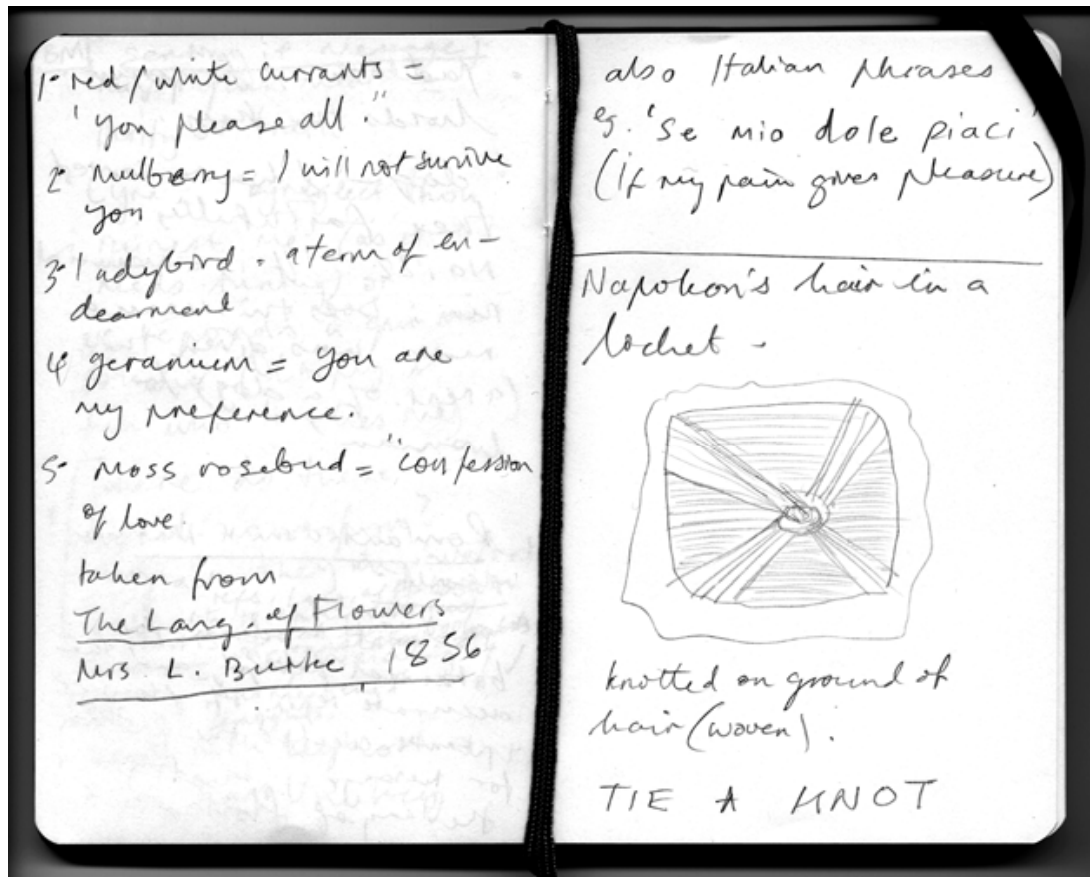 1. red/white currants =
"you please all."
2. mulberry = I will not survive
you
3. ladybird = a term of en-
dearment
4 geranium = you are
my preference.
5. moss rosebud = "confession
of love.
taken from
The Lang. of Flowers
Mrs. L. Burke, 1856
also Italian phrases
eg. 'Se mio dole piaci'
(if my pain gives pleasure)
Napoleon's hair in a
locket -
knotted on ground of
hair (woven).
TIE A KNOT